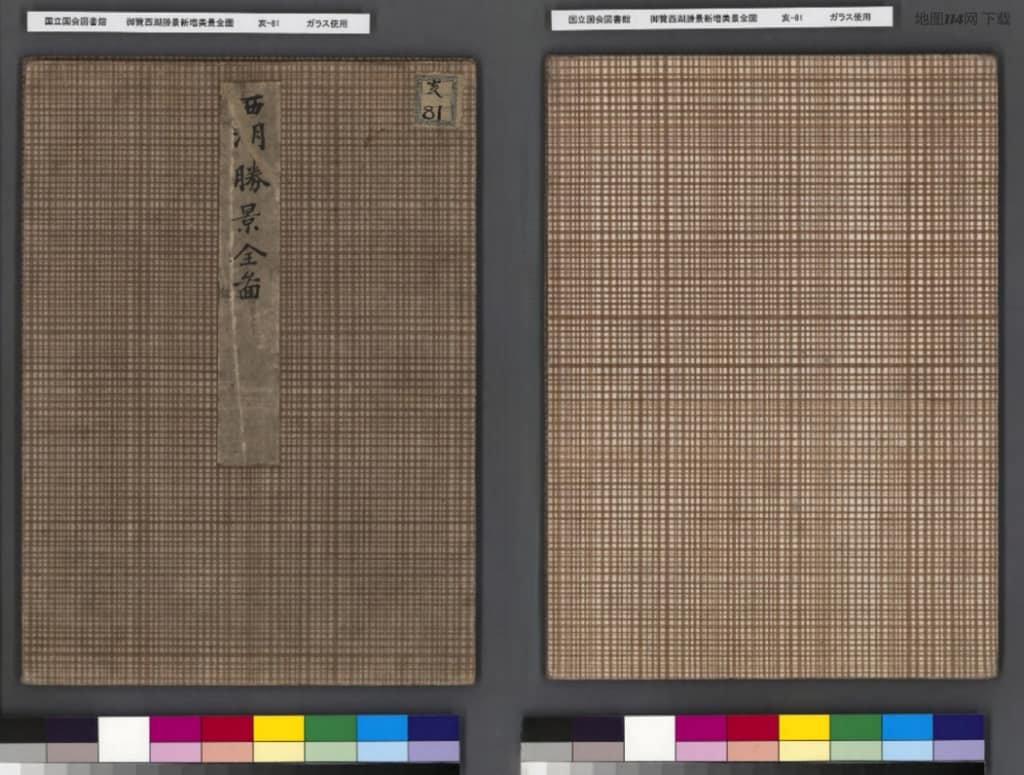 国立国会図書館 御覽西湖勝景新增美景全圖 亥-81 ガラス使用
国立国会図書館 御覽西湖勝景新增美景全圖 亥-81 ガラス使用
地图114网 下载
亥
81
西湖勝景全圖